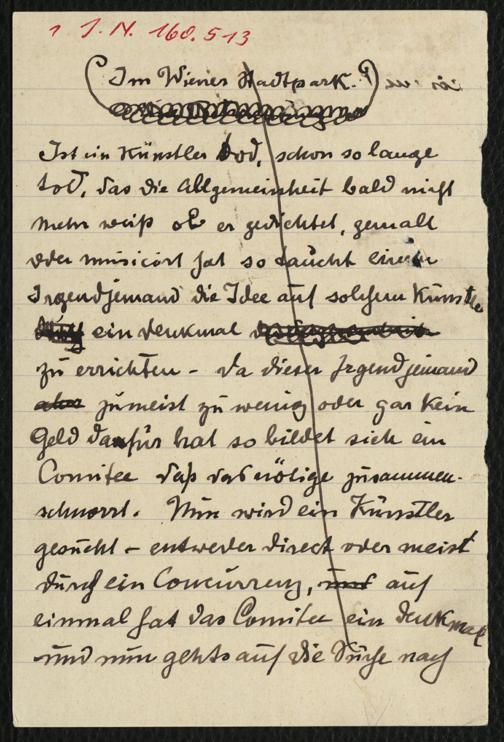 1 J.N. 160.513
(Im Wiener Stadtpark.)
Ist ein Künstler tod, schon so lange
tod, das die Allgemeinheit bald nicht
mehr weiß ob er gedichtet, gemalt
oder musicirt hat so taucht einem
Irgendjemand die Idee auf solchem Künstler
ein Denkmal
zu errichten - da dieser Irgendjemand
zumeist zu wenig oder gar kein
Geld dafür hat so bildet sich ein
Comitee daß das nötige zusammen-
schnorrt. Nun wird ein Künstler
gesucht - entweder direct oder meist
durch ein Concurrenz, auf
einmal hat das Comitee ein Denkmal
und nun gehts auf die Suche nach